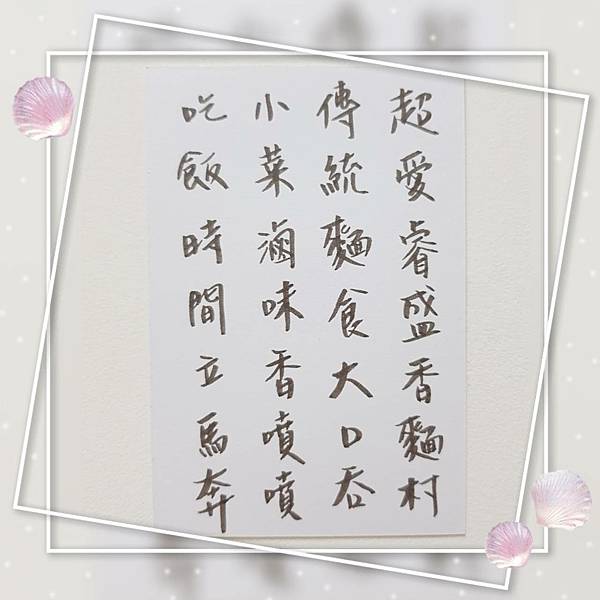 超愛睿盛香麵村
傳統麵食大口吞
小菜滷味香噴噴
吃飯時間立馬奔